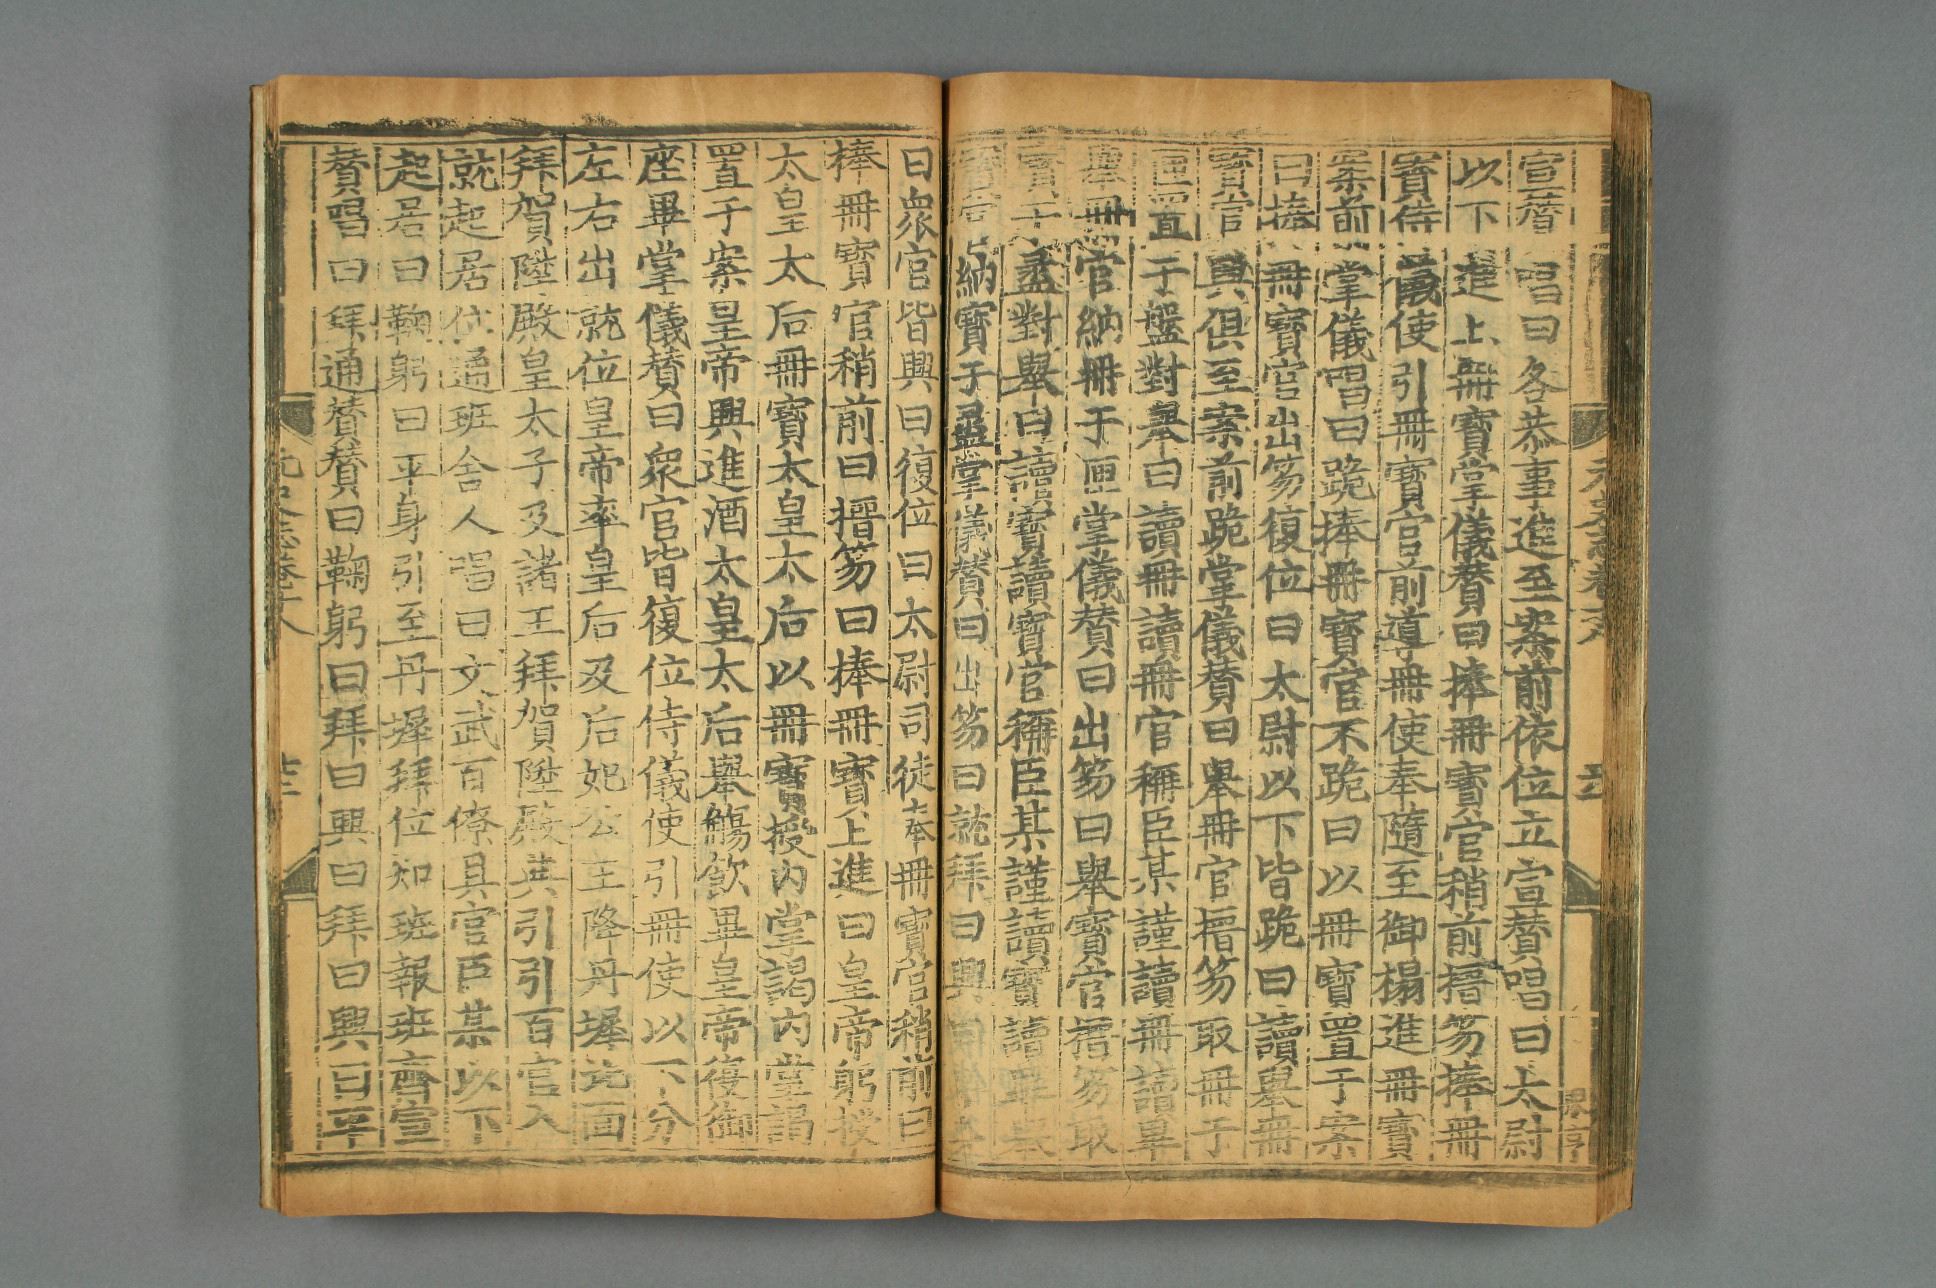 宣贊唱曰各恭事進至案前依位立宣贊唱曰太尉
以下進上冊寶掌儀贊曰捧冊寶官稍前搢笏捧冊
寶侍儀使引冊寶官前導冊使奉隨至御榻進冊寶
案前掌儀唱曰跪捧冊寶官不跪曰以冊寶置于案
曰捧冊寶官出笏復位曰太尉以下皆跪曰讀舉冊
寶官興俱至案前跪掌儀贊曰舉冊官搢笏取冊于
匣置于盤對舉曰讀冊讀冊官稱臣某謹讀冊讀畢
舉冊官納冊于匣掌儀贊曰出笏曰舉寶官搢笏取
寶于盝對舉曰讀寶讀寶官稱臣某謹讀寶讀畢舉
寶官納寶于盝掌儀贊曰出笏曰就拜曰興
曰衆官皆興曰復位曰太尉司徒奉冊寶官稍前曰
捧冊寶官稍前曰搢笏曰捧冊寶上進曰皇帝躬授
太皇太后冊寶太皇太后以冊寶授內掌謁內掌謁
置于案皇帝興進酒太皇太后舉觴飲畢皇帝復御
座畢掌儀贊曰衆官皆復位侍儀使引冊使以下分
左右出就位皇帝率皇后及后妃公主降丹墀北面
拜賀陞殿皇太子及諸王拜賀陞殿典引引百官入
就起居位通班舍人唱曰文武百僚具官臣某以下
起居曰鞠躬曰平身引至丹墀拜位知班報班齊宣
贊唱曰拜通贊贊曰鞠躬曰拜曰興曰拜曰興曰平
元史志卷十八